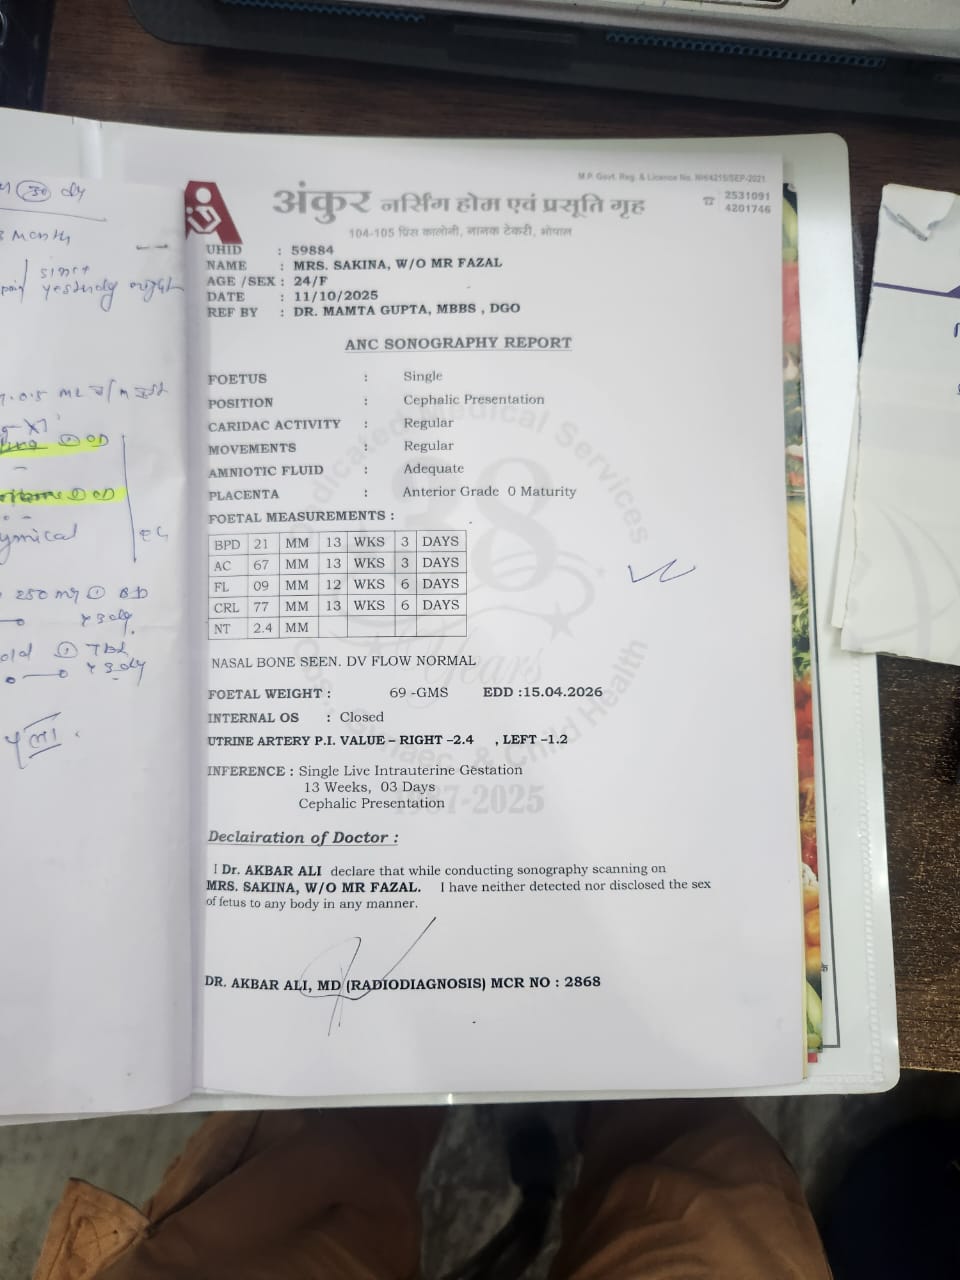 M.P. Govt. Reg. & Licence No. NH/4215/SEP-2021
अंकुर नर्सिंग होम एवं प्रसूति गृह
2531091
4201746
104-105 प्रिंस कालोनी, नानक टेकरी, भोपाल
UHID : 59884
NAME : MRS. SAKINA, W/O MR FAZAL
AGE /SEX : 24/F
DATE : 11/10/2025
REF BY : DR. MAMTA GUPTA, MBBS , DGO
ANC SONOGRAPHY REPORT
FOETUS : Single
POSITION : Cephalic Presentation
CARIDAC ACTIVITY : Regular
MOVEMENTS : Regular
AMNIOTIC FLUID : Adequate
PLACENTA : Anterior Grade 0 Maturity
FOETAL MEASUREMENTS :
BPD 21 MM 13 WKS 3 DAYS
AC 67 MM 13 WKS 3 DAYS
FL 09 MM 12 WKS 6 DAYS
CRL 77 MM 13 WKS 6 DAYS
NT 2.4 MM
NASAL BONE SEEN. DV FLOW NORMAL
FOETAL WEIGHT : 69 -GMS EDD :15.04.2026
INTERNAL OS : Closed
UTRINE ARTERY P.I. VALUE – RIGHT –2.4 , LEFT –1.2
INFERENCE : Single Live Intrauterine Gestation
13 Weeks, 03 Days
Cephalic Presentation
Declairation of Doctor :
I Dr. AKBAR ALI declare that while conducting sonography scanning on
MRS. SAKINA, W/O MR FAZAL. I have neither detected nor disclosed the sex
of fetus to any body in any manner.
DR. AKBAR ALI, MD (RADIODIAGNOSIS) MCR NO : 2868
38
Years
Dedicated Medical Services
Obs., Gynaec. & Child Health
1987-2025
Month
since
pain yesterday night
OD
OD
250 mg BD
x 3 dy
TDS
x 3 dy